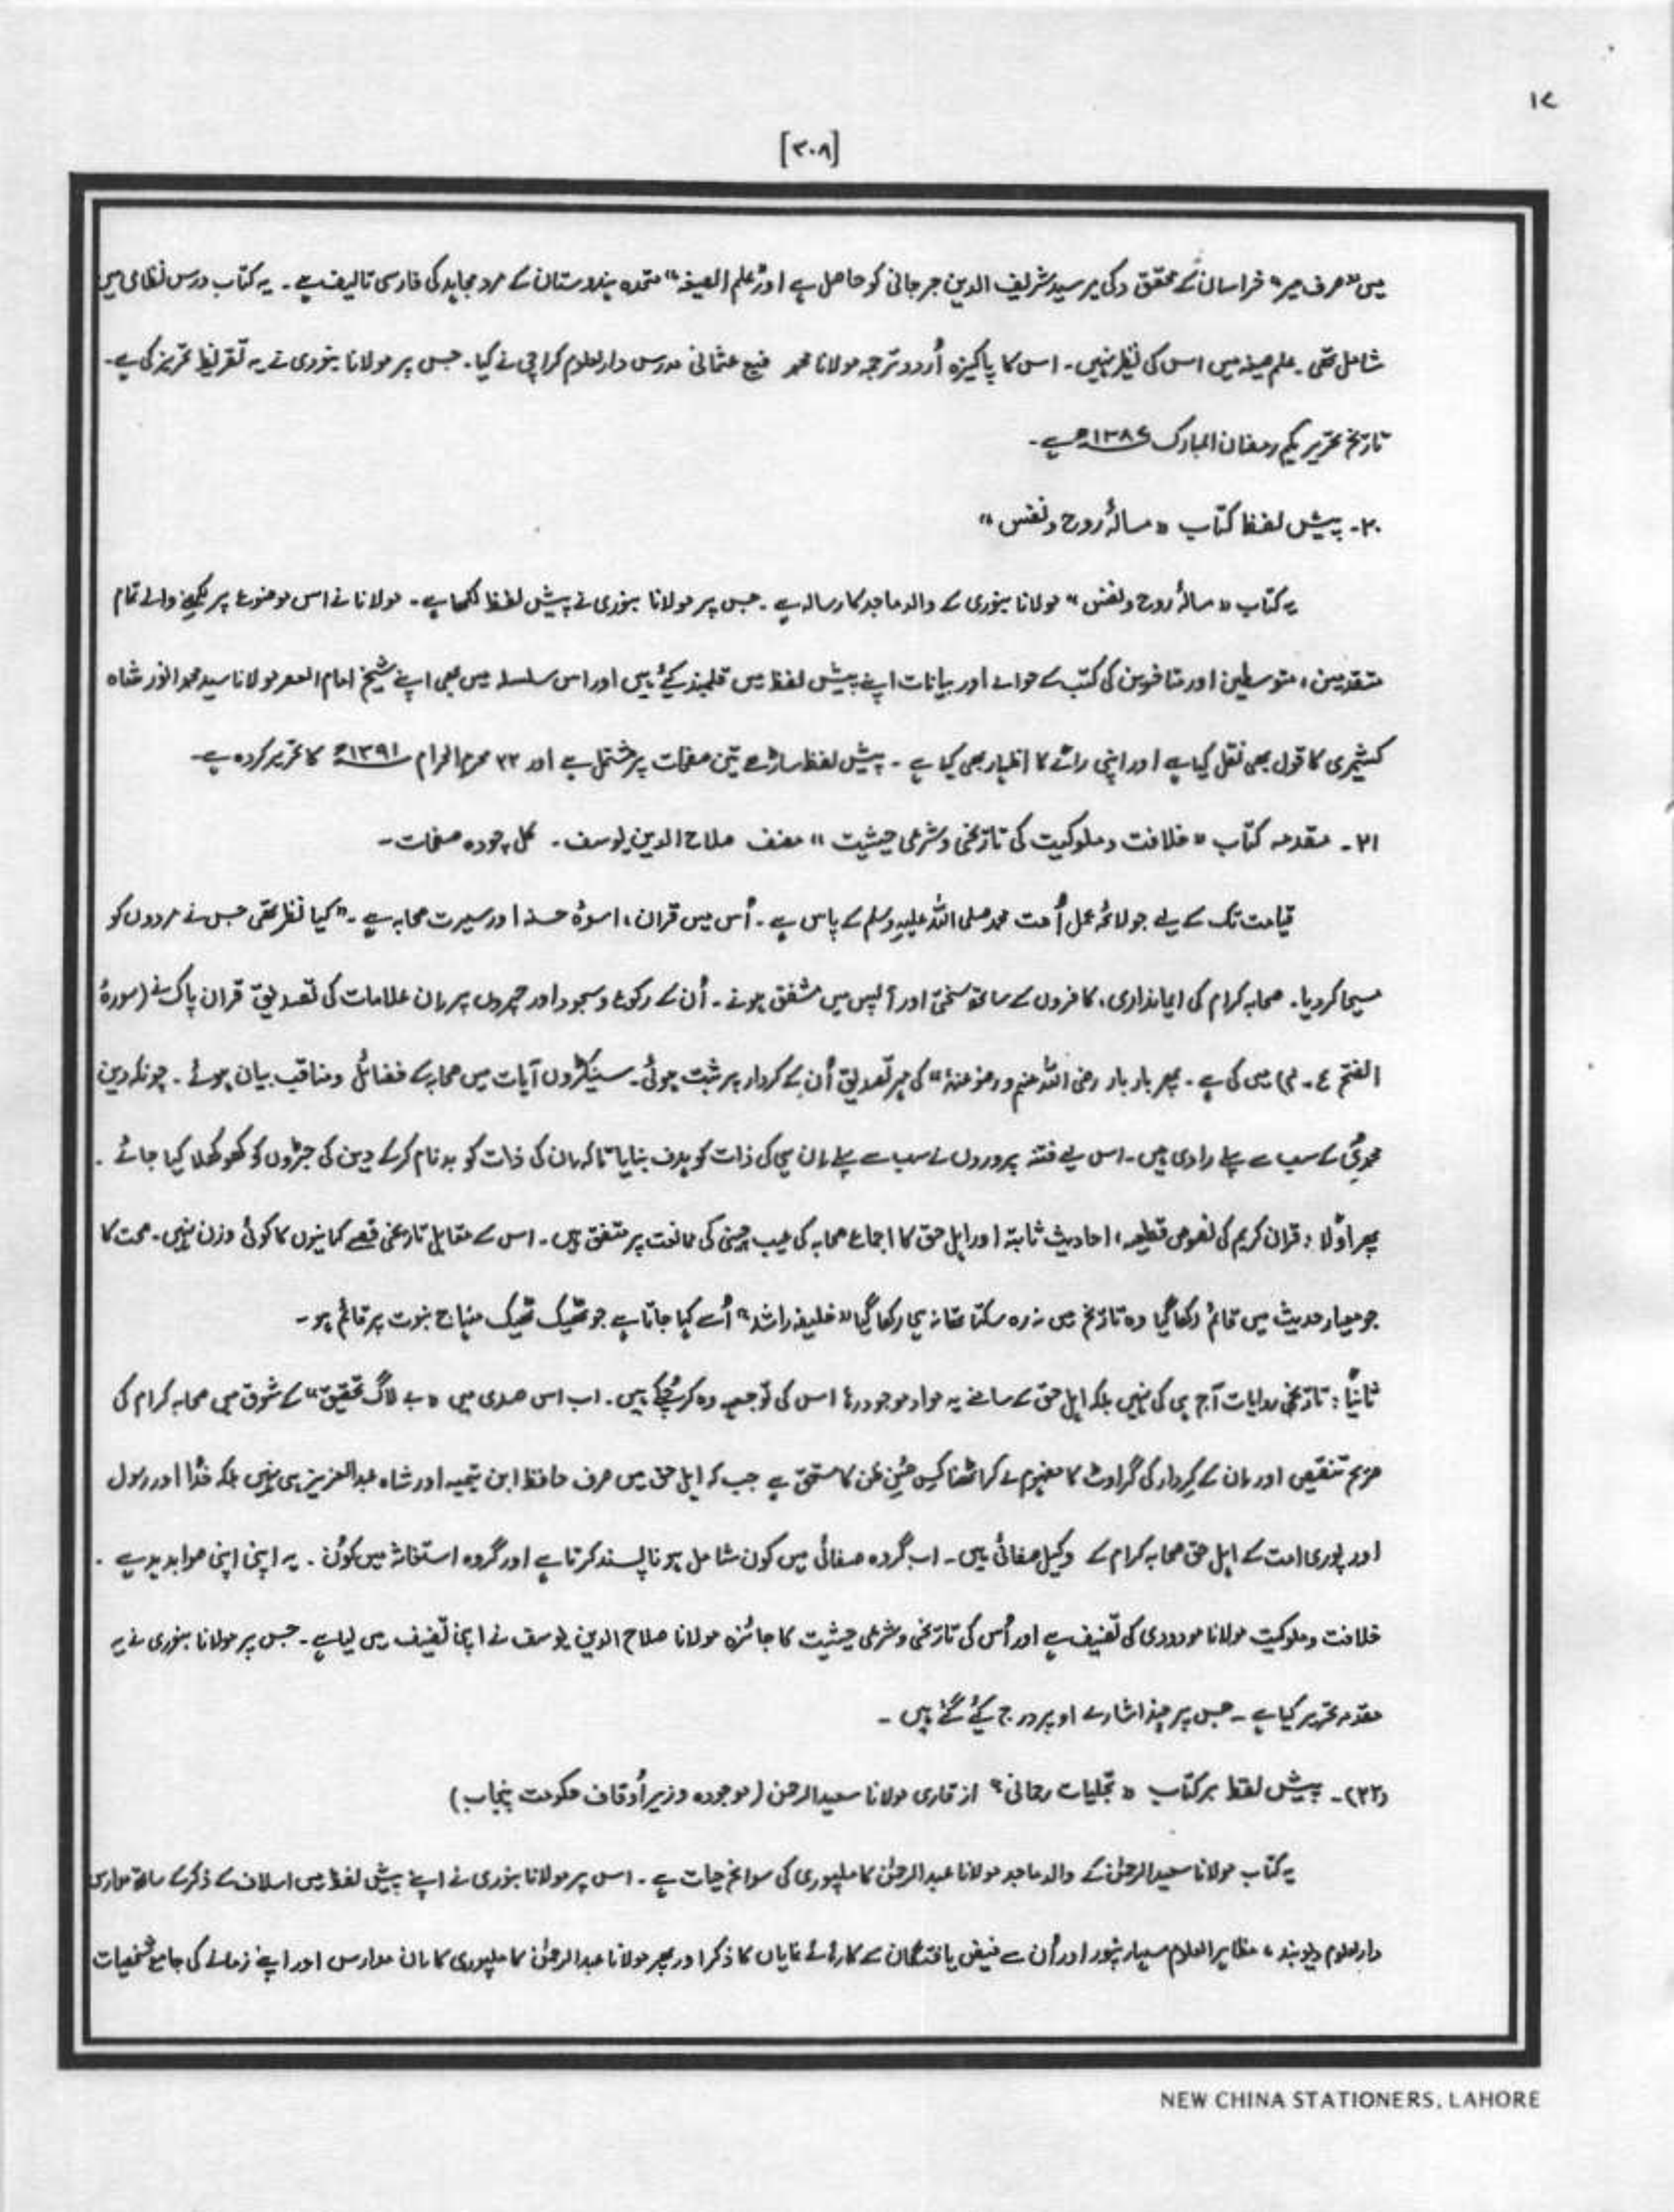 ۱۷
[۳۰۸]
میں "صرف میر" خراسان کے محقق و کی میر سید شریف الدین جرجانی کو حاصل ہے اور "علم الصیغہ" متحدہ ہندوستان کے مرد مجاہد کی فارسی تالیف ہے۔ یہ کتاب درس نظامی میں
شامل تھی۔ علم صیغہ میں اس کی نظیر نہیں۔ اس کا پاکیزہ اُردو ترجمہ مولانا محمد رفیع عثمانی مدرس دارالعلوم کراچی نے کیا۔ جس پر مولانا بنوری نے یہ تقریظ تحریر کی ہے۔
تاریخ تحریر یکم رمضان المبارک ۱۳۸۶ھ ہے۔
۲۰۔ پیش لفظ کتاب "مسالۂ روح و نفس"
یہ کتاب "مسالۂ روح و نفس" مولانا بنوری کے والد ماجد کا رسالہ ہے۔ جس پر مولانا بنوری نے پیش لفظ لکھا ہے۔ مولانا نے اس موضوع پر لکھنے والے تمام
متقدمین، متوسطین اور متاخرین کی کتب کے حوالے اور بیانات اپنے پیش لفظ میں قلمبند کیے ہیں اور اس سلسلہ میں بھی اپنے شیخ امام العصر مولانا سید محمد انور شاہ
کشمیری کا قول بھی نقل کیا ہے اور اپنی رائے کا اظہار بھی کیا ہے۔ پیش لفظ ساڑھے تین صفحات پر مشتمل ہے اور ۲۲ محرم الحرام ۱۳۹۱ھ کا تحریر کردہ ہے۔
۲۱۔ مقدمہ کتاب "خلافت و ملوکیت کی تاریخی و شرعی حیثیت" مصنف صلاح الدین یوسف۔ کل چودہ صفحات۔
قیامت تک کے لیے جو لائحہ عمل اُمت محمد صلی اللہ علیہ وسلم کے پاس ہے۔ اُس میں قران، اسوۂ حسنہ اور سیرت صحابہ ہے۔ "کیا نظر تھی جس نے مردوں کو
مسیحا کر دیا۔ صحابہ کرام کی ایمانداری، کافروں کے ساتھ سختی اور آپس میں مشفق ہونے۔ اُن کے رکوع و سجود اور چہروں پر ان علامات کی تصدیق قران پاک نے (سورۂ
الفتح ع۔ ۴) میں کی ہے۔ پھر بار بار رضی اللہ عنہم و رضو عنہ" کی مہر تصدیق اُن کے کردار پر ثبت ہوئی۔ سینکڑوں آیات میں صحابہ کے فضائل و مناقب بیان ہوئے۔ چونکہ دین
محمدیؐ کے سب سے پہلے راوی ہیں۔ اس لیے فتنہ پروروں نے سب سے پہلے ان ہی کی ذات کو ہدف بنایا تاکہ ان کی ذات کو بدنام کرکے دین کی جڑوں کو کھوکھلا کیا جائے۔
پھر اوّلا: قران کریم کی نصوص قطیعہ، احادیث ثابتہ اور اہل حق کا اجماع صحابہ کی عیب چینی کی ممانعت پر متفق ہیں۔ اس کے مقابل تاریخی قصے کہانیوں کا کوئی وزن نہیں۔ صحت کا
جو معیار حدیث میں قائم رکھا گیا وہ تاریخ میں نہ رہ سکتا تھا نہ ہی رکھا گیا "خلیفہ راشد" اُسے کہا جاتا ہے جو ٹھیک ٹھیک منہاج نبوت پر قائم ہو۔
ثانیاً: تاریخی روایات آج ہی کی نہیں بلکہ اہل حق کے سامنے یہ مواد موجود رہا اس کی توجیہہ وہ کر چکے ہیں۔ اب اس صدی میں "بے لاگ تحقیق" کے شوق میں صحابہ کرام کی
صریح تنقیص اور ان کے کردار کی گراوٹ کا مفہوم لے کر اٹھنا کس حسن ظن کا مستحق ہے جب کہ اہل حق میں صرف حافظ ابن تیمیہ اور شاہ عبدالعزیز ہی نہیں بلکہ خدا اور رسول
اور پوری امت کے اہل حق صحابہ کرام کے وکیل صفائی ہیں۔ اب گروہ صفائی میں کون شامل ہونا پسند کرتا ہے اور گروہ استغاثہ میں کون۔ یہ اپنی اپنی صوابدید ہے۔
خلافت و ملوکیت مولانا مودودی کی تصنیف ہے اور اُس کی تاریخی و شرعی حیثیت کا جائزہ مولانا صلاح الدین یوسف نے اپنی تصنیف میں لیا ہے۔ جس پر مولانا بنوری نے یہ
مقدمہ تحریر کیا ہے۔ جس پر چند اشارے اوپر درج کیے گئے ہیں۔
(۲۲)۔ پیش لفظ بر کتاب "تجلیات رحمانی" از قاری مولانا سعید الرحمن (موجودہ وزیر اُوقاف حکومت پنجاب)
یہ کتاب مولانا سعید الرحمٰن کے والد ماجد مولانا عبدالرحمٰن کاملپوری کی سوانح حیات ہے۔ اس پر مولانا بنوری نے اپنے پیش لفظ میں اسلاف کے ذکر کے ساتھ مدارس
دارالعلوم دیوبند، مظاہر العلوم سہارنپور اور اُن سے فیض یافتگان کے کارہائے نمایاں کا ذکر اور پھر مولانا عبدالرحمٰن کاملپوری کا ان مدارس اور اپنے زمانے کی جامع شخصیات
NEW CHINA STATIONERS, LAHORE